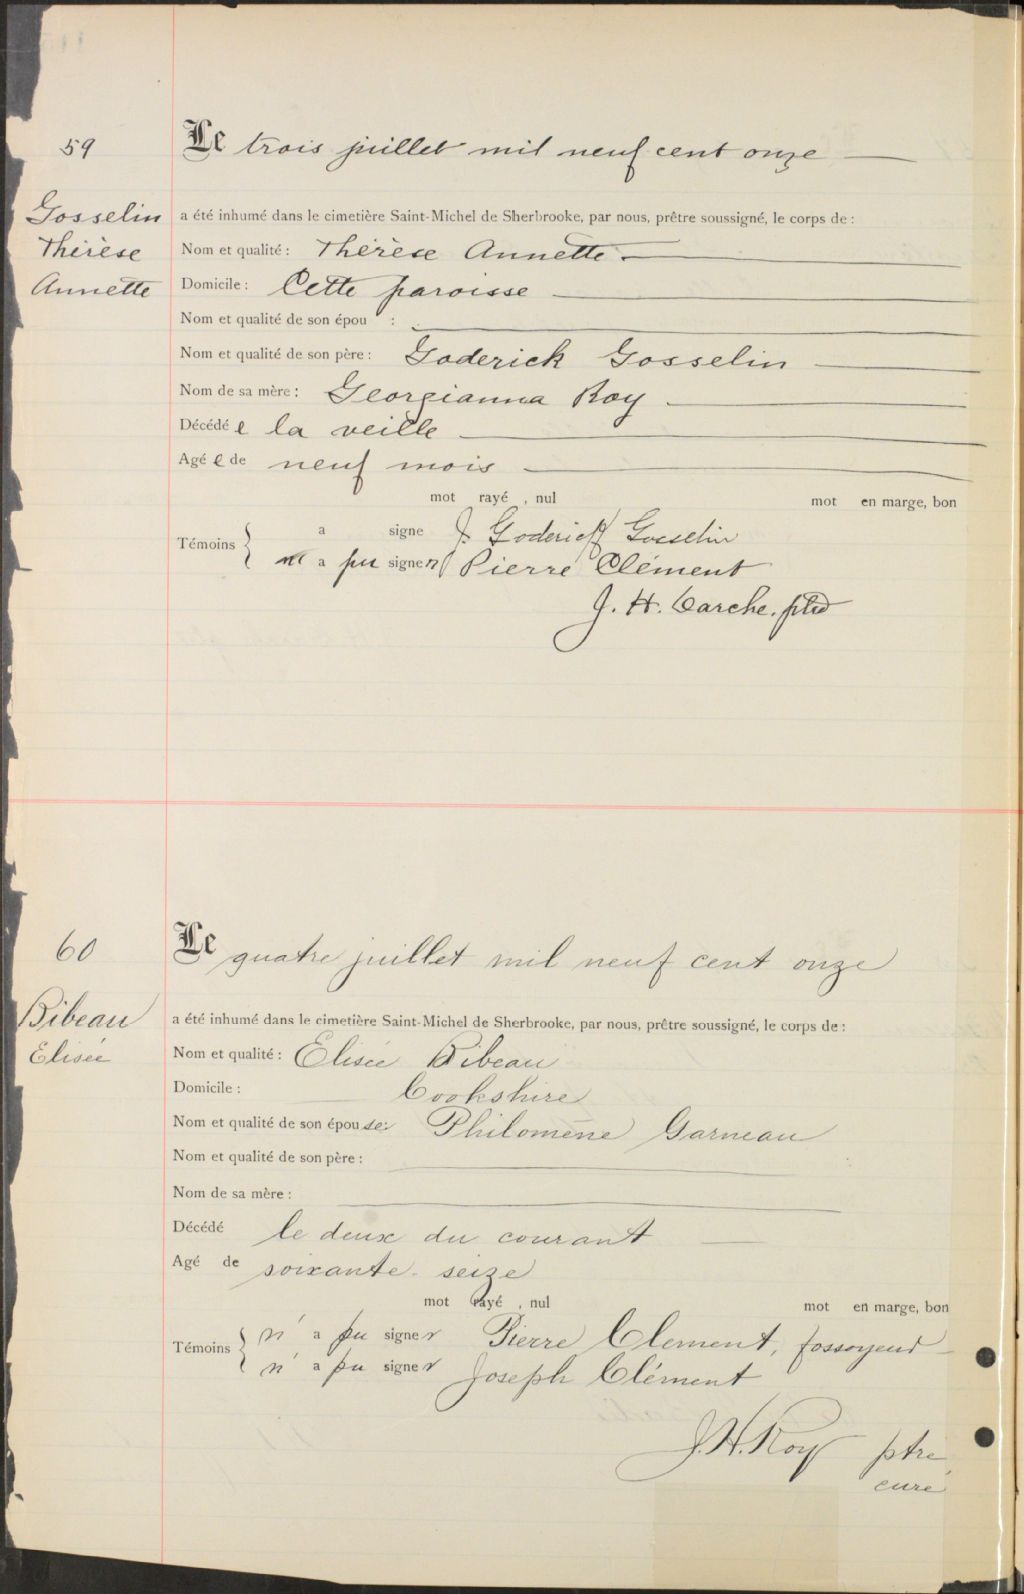 59
Le trois juillet mil neuf cent onze
Gosselin
Thérèse
Annette
a été inhumé dans le cimetière Saint-Michel de Sherbrooke, par nous, prêtre soussigné, le corps de :
Nom et qualité : Thérèse Annette
Domicile : Cette paroisse
Nom et qualité de son épou :
Nom et qualité de son père : Goderick Gosselin
Nom de sa mère : Georgianna Roy
Décédé e la veille
Agé e de neuf mois
mot rayé , nul mot en marge, bon
Témoins
a signe J. Goderick Gosselin
n' a pu signer Pierre Clément
J. H. Carche, ptre
60
Le quatre juillet mil neuf cent onze
Bibeau
Elisée
a été inhumé dans le cimetière Saint-Michel de Sherbrooke, par nous, prêtre soussigné, le corps de :
Nom et qualité : Elisée Bibeau
Domicile : Cookshire
Nom et qualité de son épouse : Philomène Garneau
Nom et qualité de son père :
Nom de sa mère :
Décédé le deux du courant
Agé de soixante-seize
mot rayé , nul mot en marge, bon
Témoins
n' a pu signer Pierre Clement, fossoyeur
n' a pu signer Joseph Clément
J. H. Roy ptre
curé